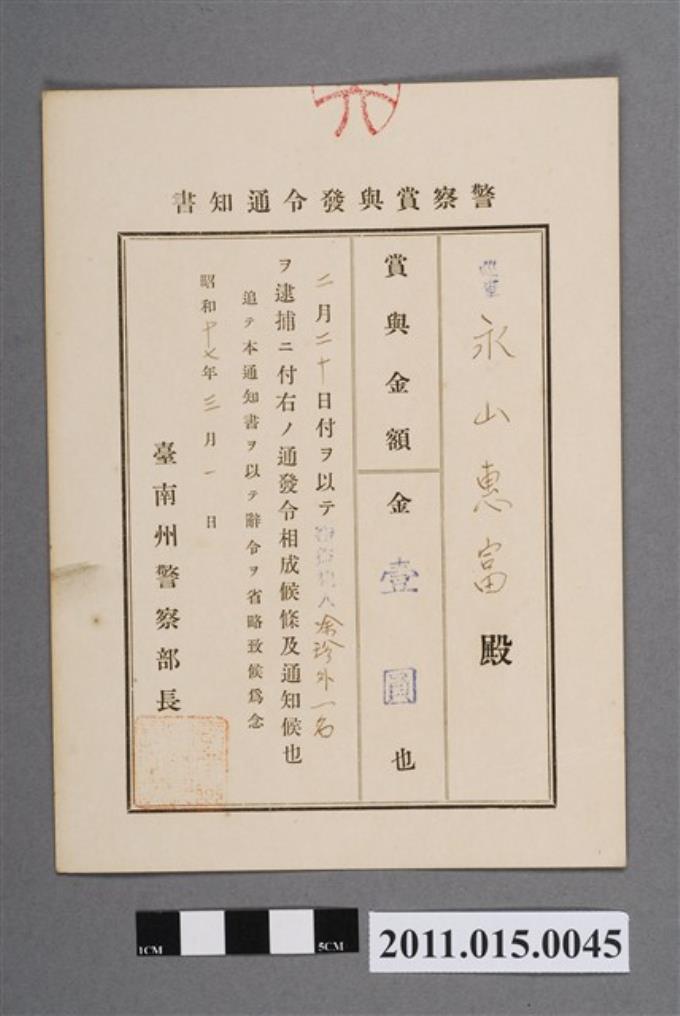 警察賞與發令通知書
巡查 永山惠富殿
賞與金額
金壹圓也
二月二十日付ヲ以テ 人余珍外一名
ヲ逮捕ニ付右ノ通發令相成候條及通知候也
追テ本通知書ヲ以テ辭令ヲ省略致候爲念
昭和十七年三月一日
臺南州警察部長
1CM
5CM
2011.015.0045